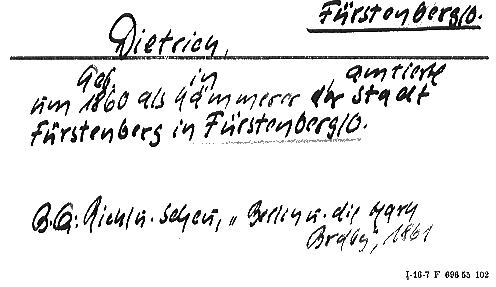 Fürstenberg/O.
Dietrich,
Geb. in , amtierte
um 1860 als Kämmerer der Stadt
Fürstenberg in Fürstenberg/O.
B.Q: Riehl u. Scheu, „Berlin u. die Mark
Brdbg", 1861
I-16-7 F 696 55 102